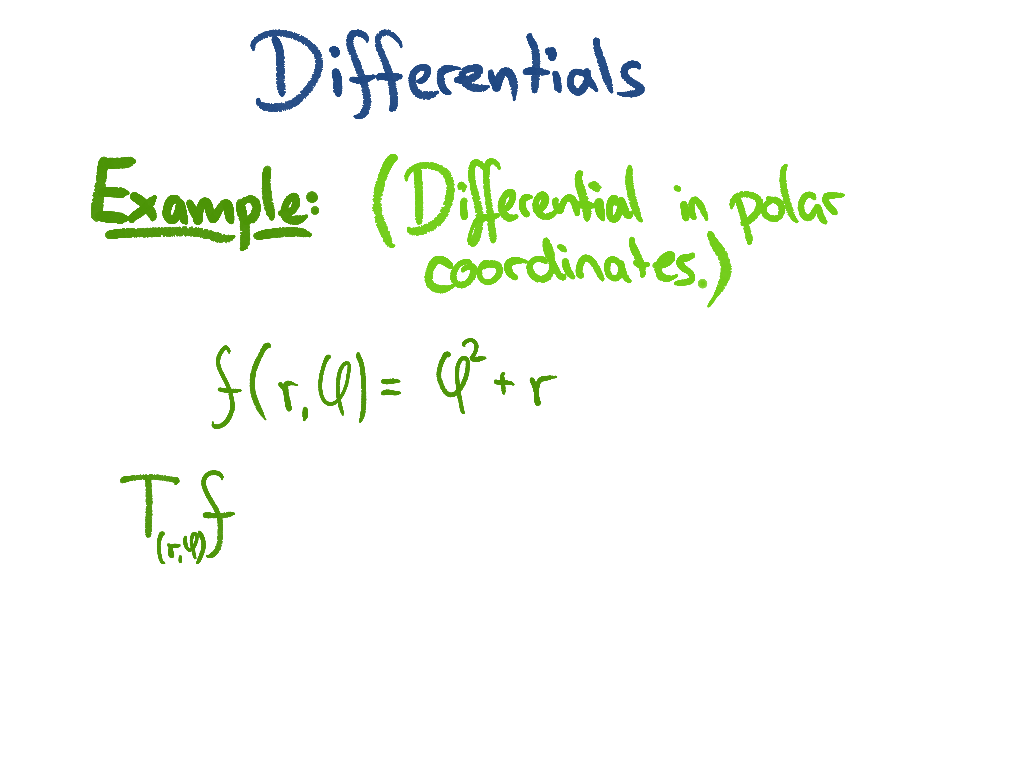 Differentials
Example: (Differential in polar
coordinates.)
f(r,φ) = φ² + r
T₍r,φ₎f